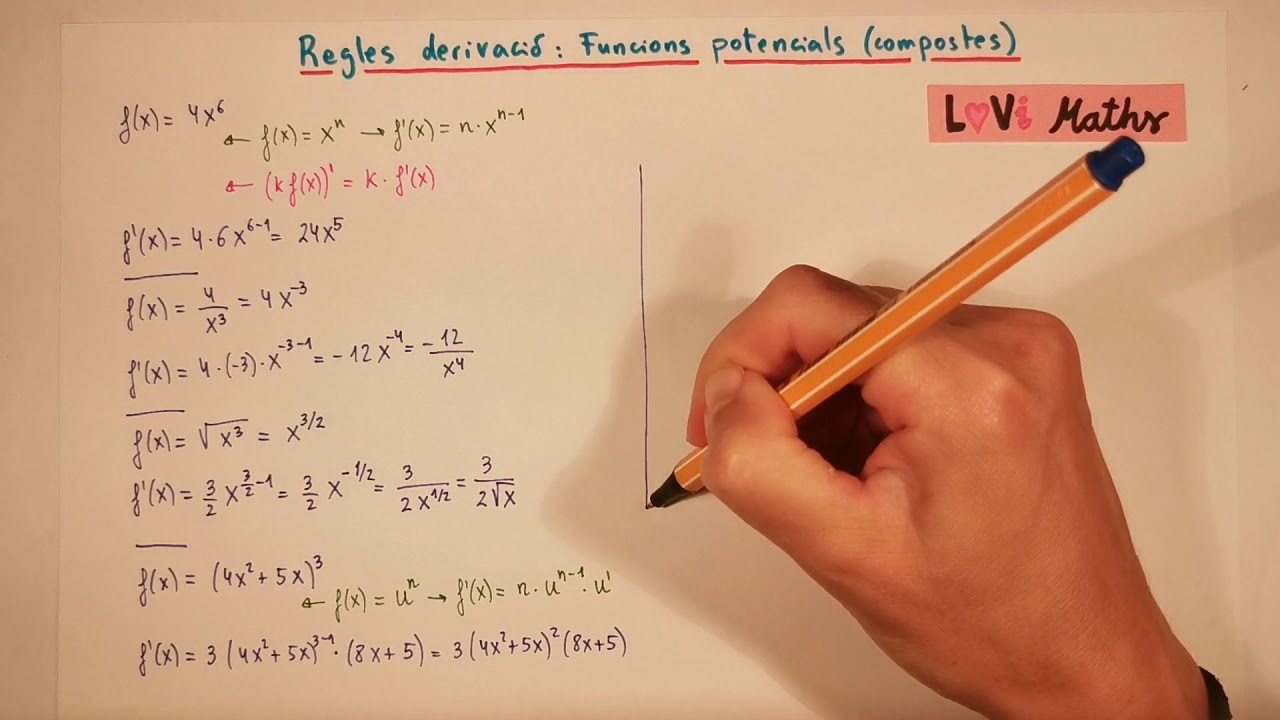 Regles derivació: Funcions potencials (compostes)
LoVi Maths
f(x) = 4x⁶
← f(x) = xⁿ → f'(x) = n·xⁿ⁻¹
← (k f(x))' = k · f'(x)
f'(x) = 4·6x⁶⁻¹ = 24x⁵
f(x) = 4/x³ = 4x⁻³
f'(x) = 4·(-3)·x⁻³⁻¹ = -12x⁻⁴ = -12/x⁴
f(x) = √(x³) = x^(3/2)
f'(x) = 3/2 x^(3/2-1) = 3/2 x^(-1/2) = 3/(2x^(1/2)) = 3/(2√x)
f(x) = (4x²+5x)³
← f(x) = uⁿ → f'(x) = n·uⁿ⁻¹·u'
f'(x) = 3(4x²+5x)³⁻¹·(8x+5) = 3(4x²+5x)²(8x+5)